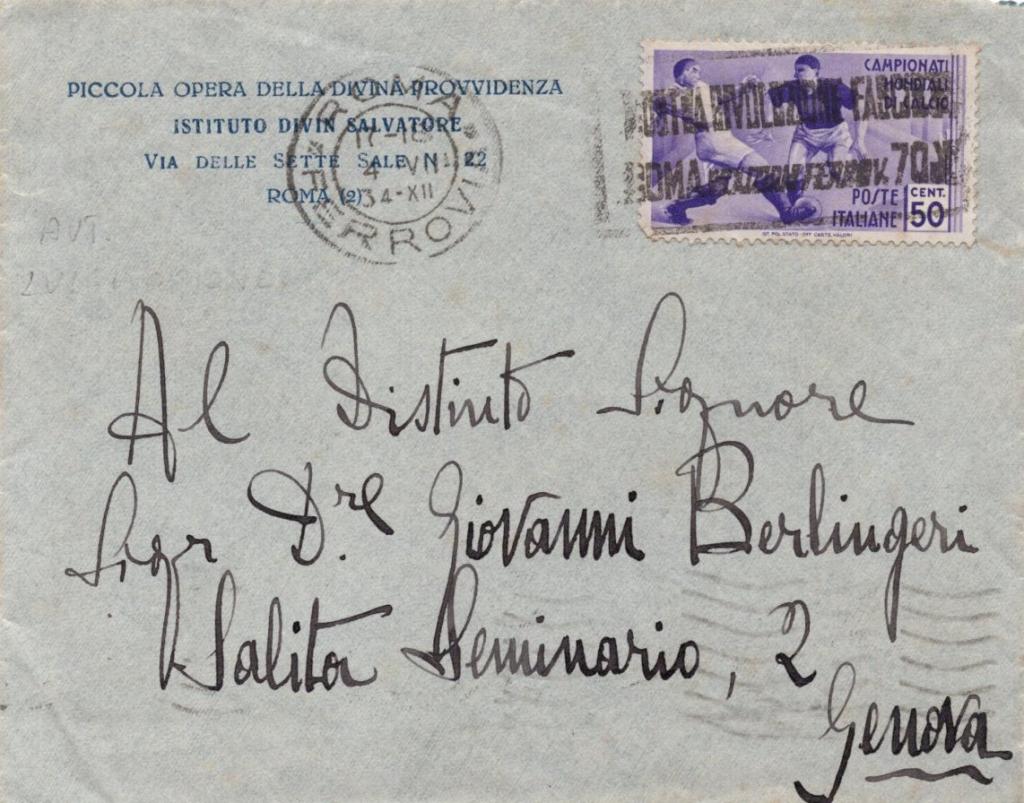 PICCOLA OPERA DELLA DIVINA PROVVIDENZA
ISTITUTO DIVIN SALVATORE
VIA DELLE SETTE SALE N. 22
ROMA (2)
ROMA
FERROVIA
4 VII
34-XII
CAMPIONATI
MONDIALI
DI CALCIO
POSTE
ITALIANE
CENT.
50
MOSTRA RIVOLUZIONE FASCISTA
ROMA RIDUZIONI FERROV. 70%
Al Distinto Signore
Sigr D.re Giovanni Berlingeri
Salita Seminario, 2
Genova